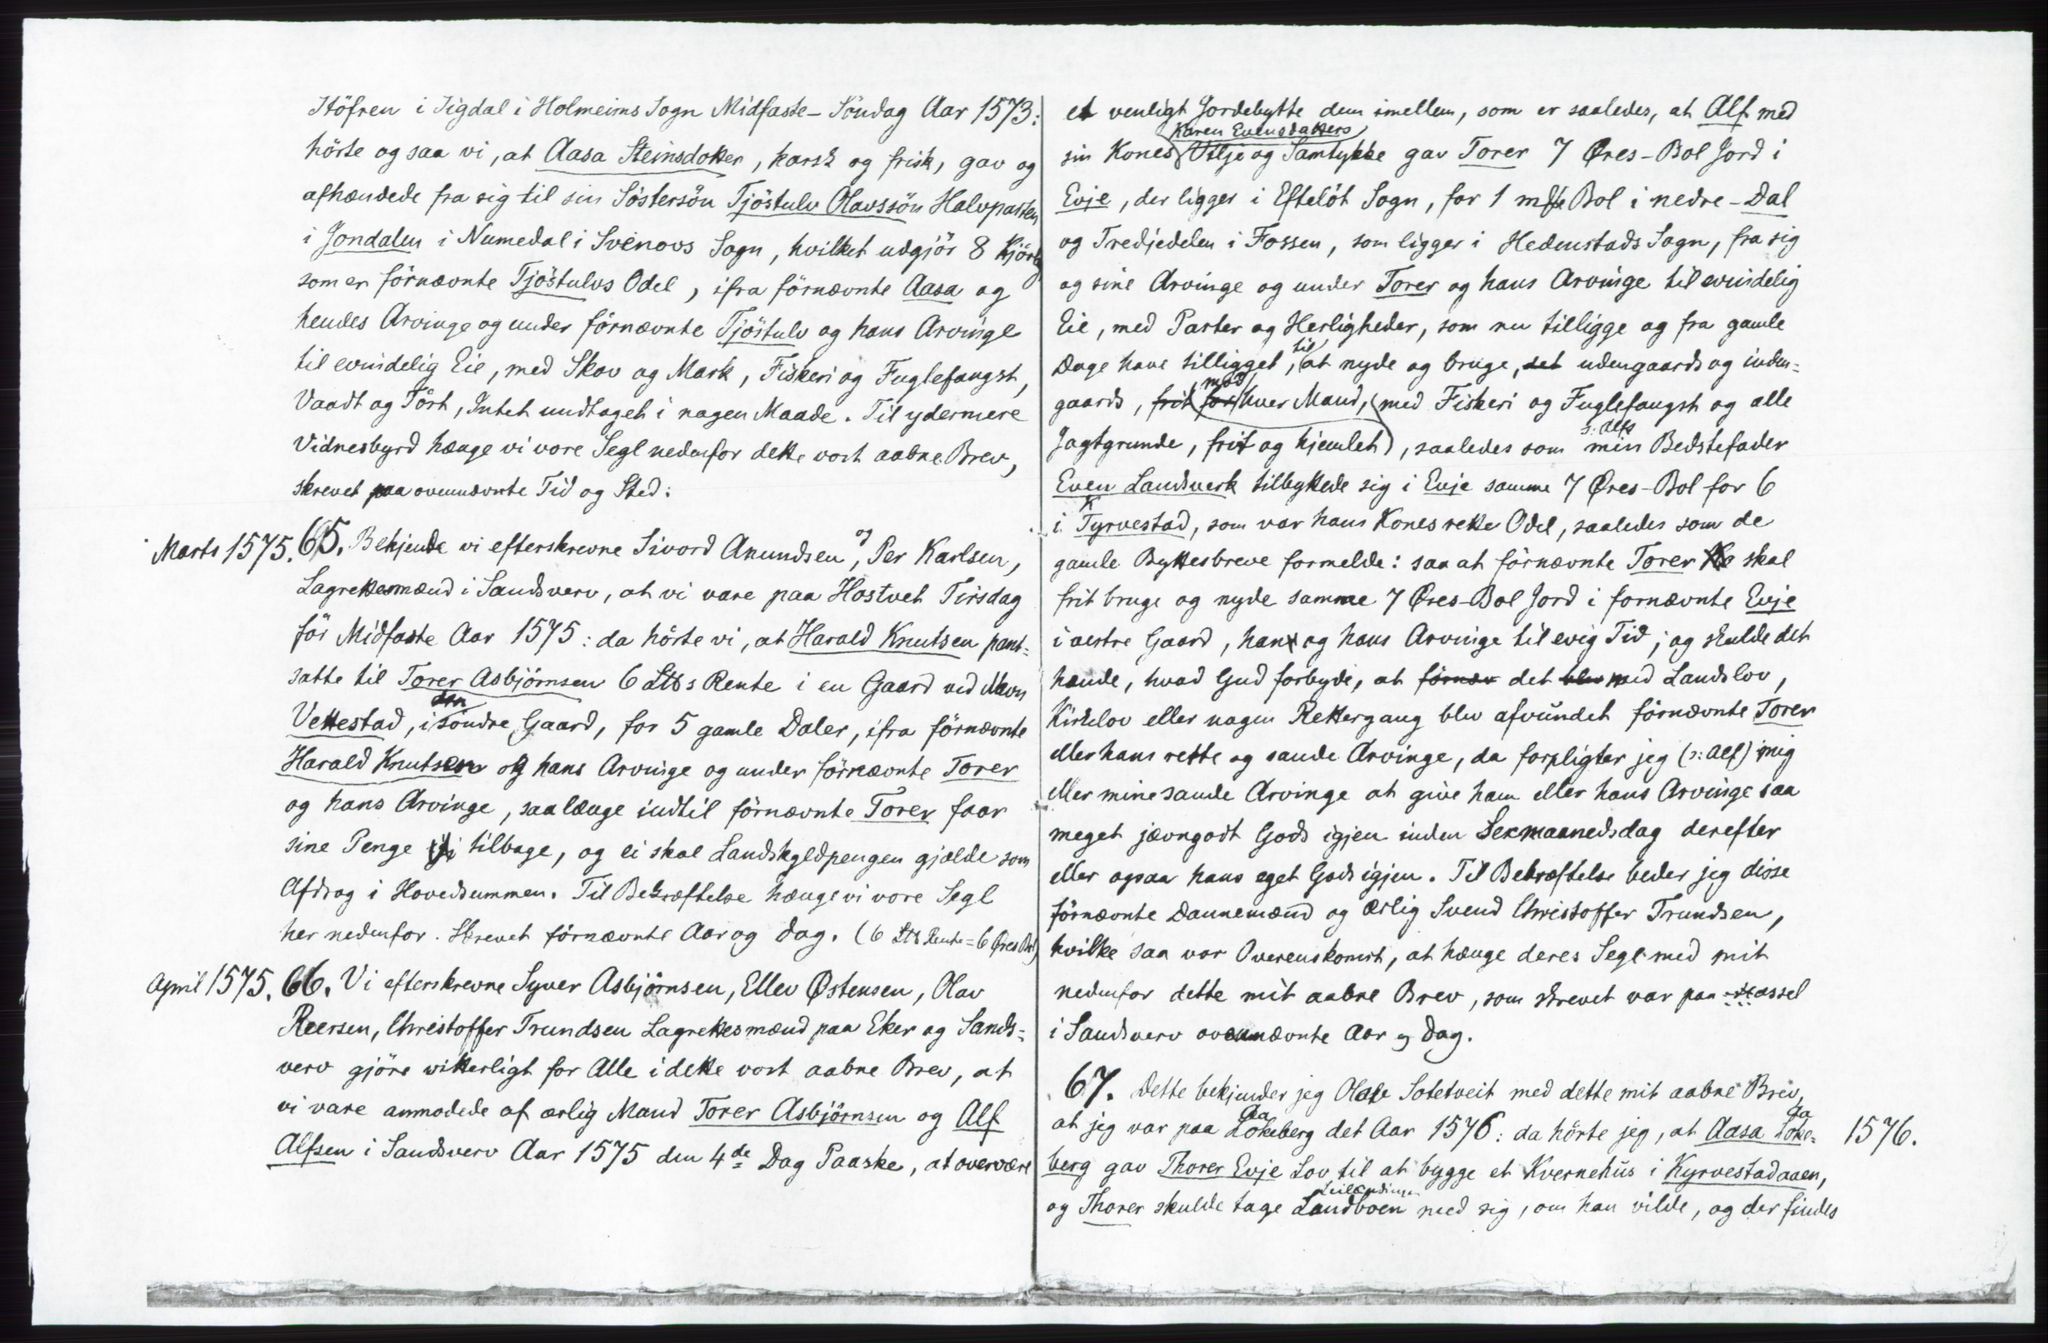 Stöfren i Sigdal i Holmeims Sogn Midfaste-Söndag Aar 1573:
hörte og saa vi, at Aasa Steinsdotter, karsk og frisk, gav og
afhændede fra sig til sin Söstersön Tjöstulv Olavssön Halvparten
i Jondalen i Numedal i Svenovs Sogn, hvilket udgjör 8
som er förnævnte Tjöstulvs Odel, ifra förnævnte Aasa og
hendes Arvinge og under förnævnte Tjöstulv og hans Arvinge
til evindelig Eie, med Skov og Mark, Fiskeri og Fuglefangst,
Vaadt og Tört, Intet undtaget i nogen Maade. Til ydermere
Vidnesbyrd hænge vi vore Segl nedenfor dette vort aabne Brev,
skrevet paa ovennævnte Tid og Sted:
Marts 1575. 65. Bekjende vi efterskrevne Sivord Amundsen, og Per Karlsen,
Lagrettesmænd i Sandsverv, at vi vare paa Hostvet Tirsdag
för Midfaste Aar 1575: da hörte vi, at Harald Knutsen pant-
satte til Torer Asbjörnsen 6 Lb s Rente i en Gaard ved Navn
Vettestad, i den söndre Gaard, for 5 gamle Daler, ifra förnævnte
Harald Knutsen og hans Arvinge og under förnævnte Torer
og hans Arvinge, saalænge indtil förnævnte Torer faar
sine Penge tilbage, og ei skal Landskyldpengen gjælde som
Afdrag i Hovedsummen. Til Bekræftelse hænge vi vore Segl
her nedenfor. Skrevet förnævnte Aar og Dag. (6 Lb Rente = 6 Öres Bol)
April 1575. 66. Vi efterskrevne Syver Asbjörnsen, Ellev Østensen, Olav
Reersen, Christoffer Trundsen Lagrettesmænd paa Eker og Sands-
verv gjöre vitterligt for Alle i dette vort aabne Brev, at
vi vare anmodede af ærlig Mand Torer Asbjörnsen og Alf
Alfsen i Sandsverv Aar 1575 den 4de Dag Paaske, at overvære
et venligt Jordebytte dem imellem, som er saaledes, at Alf med
sin Kones Karen Evensdatters Vilje og Samtykke gav Torer 7 Øres-Bol Jord i
Evje, der ligger i Eftelöt Sogn, for 1 Bol i nedre-Dal
og Tredjedelen i Fossen, som ligger i Hedenstads Sogn, fra sig
og sine Arvinge og under Torer og hans Arvinge til evindelig
Eie, med Parter og Herligheder, som nu tilligge og fra gamle
Dage have tilligget, til at nyde og bruge, det udengaards og inden-
gaards, frit for mod hver Mand, (med Fiskeri og Fuglefangst og alle
Jagtgrunde, frit og hjemlet), saaledes som min ɔ: Alfs Bedstefader
Even Landsverk tilbyttede sig i Evje samme 7 Øres-Bol for 6
i Kyrvestad, som var hans Kones rette Odel, saaledes som de
gamle Byttesbreve formelde: saa at förnævnte Torer skal
frit bruge og nyde samme 7 Øres-Bol Jord i fornævnte Evje
i vestre Gaard, han og hans Arvinge til evig Tid; og skulde det
hænde, hvad Gud forbyde, at förnæv det blev med Landslov,
Kirkelov eller nogen Rettergang blev afvundet förnævnte Torer
eller hans rette og sande Arvinge, da forpligter jeg (ɔ: Alf) mig
eller mine sande Arvinge at give ham eller hans Arvinge saa
meget jævngodt Gods igjen inden Sexmaanedsdag derefter
eller ogsaa hans eget Gods igjen. Til Bekræftelse beder jeg disse
förnævnte Dannemænd og ærlig Svend Christoffer Trundsen,
hvilke saa var Overenskomst, at hænge deres Segl med mit
nedenfor dette mit aabne Brev, som skrevet var paa
i Sandsverv ovennævnte Aar og Dag.
67. Dette bekjender jeg Olave Sotetveit med dette mit aabne Brev,
at jeg var paa Lokeberg det Aar 1576: da hörte jeg, at Aasa Loke- 1576.
berg gav Thorer Evje Lov til at bygge et Kvernehüs i Kyrvestadaaen,
og Thorer skulde tage Landboen med sig, om han vilde, og der findes